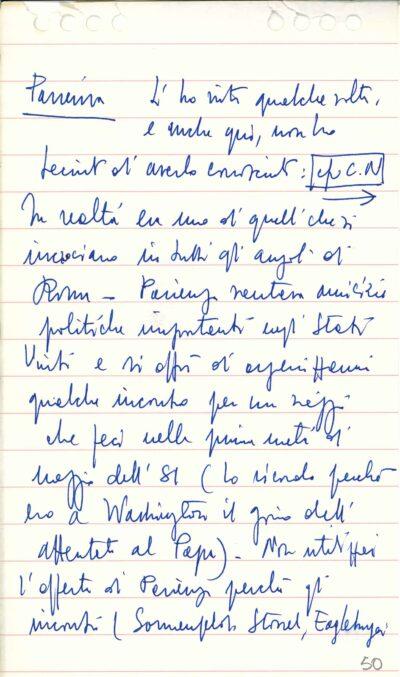 Pazienza L'ho visto qualche volta,
e anche qui, non ho
di averlo conosciuto: cfr C.N
In realtà era uno di quelli che si
incrociano in tutti gli angoli di
Roma - Pazienza vantava amicizie
politiche importanti negli Stati
Uniti e si offrì di organizzarmi
qualche incontro per un viaggio
che feci nella prima metà di
maggio dell'81 (lo ricordo perché
ero a Washington il giorno dell'
attentato al Papa). Non utilizzai
l'offerta di Pazienza perché gli
incontri (Sonnenfeldt, Stoessel, Eagleburger
50